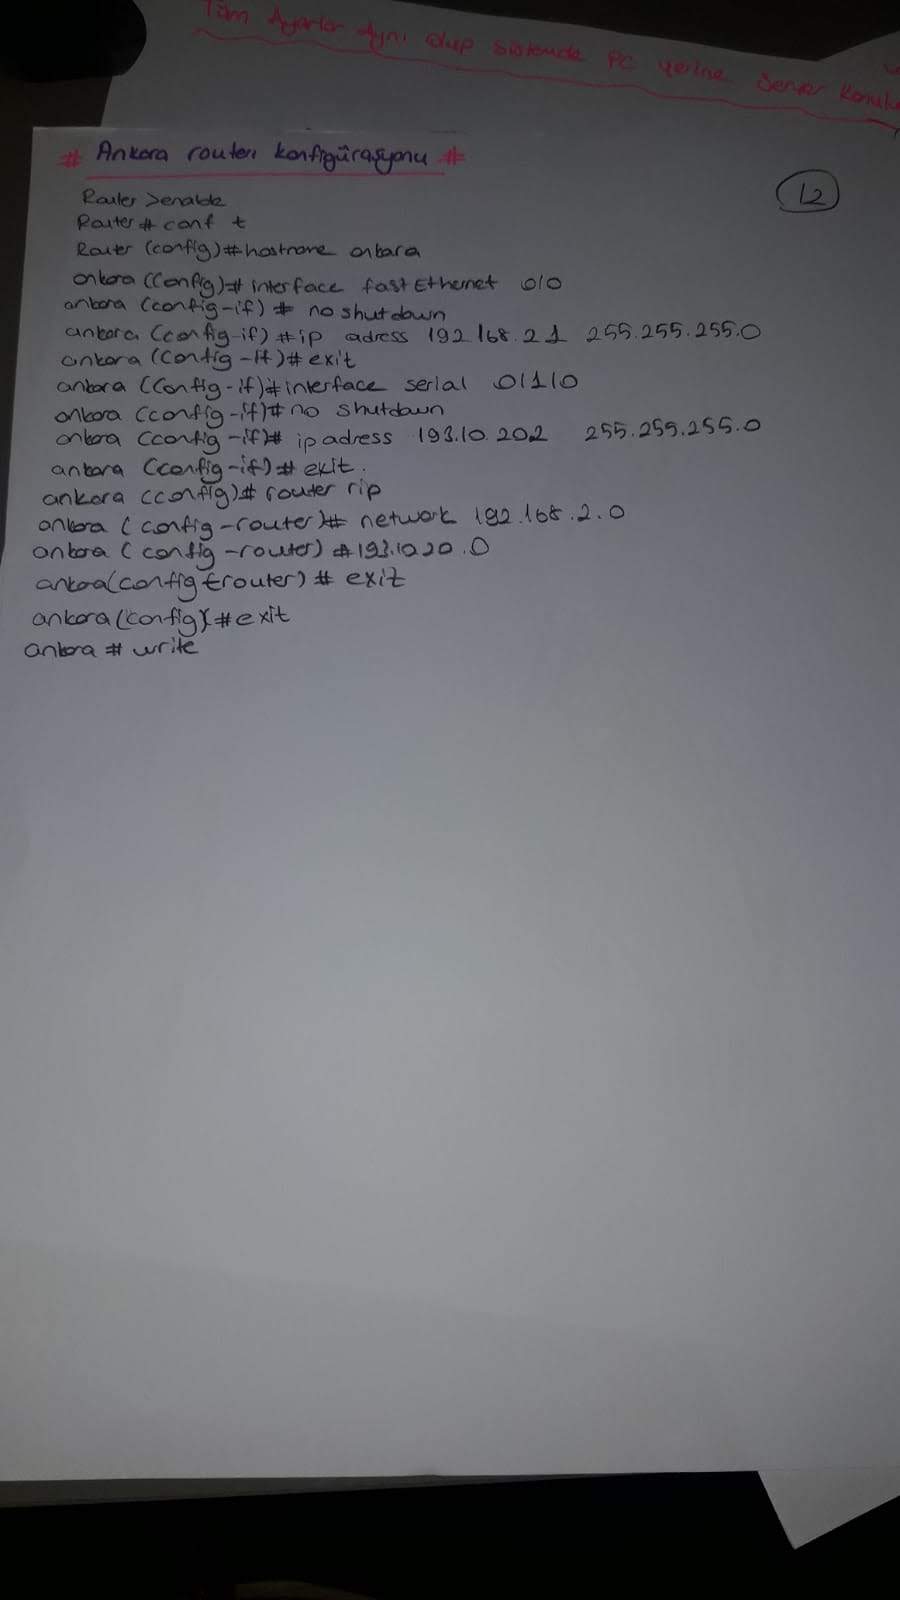 Tüm Ayarlar Aynı olup sistemde PC yerine Server
# Ankara routerı konfigürasyonu #
12
Router >enable
Router # conf t
Router (config)#hostname ankara
ankara (config)# interface fastEthernet 0/0
ankara (config-if) # no shutdown
ankara (config-if) #ip adress 192.168.2.1 255.255.255.0
ankara (config-if)# exit
ankara (config-if)#interface serial 0/1/0
ankara (config-if)# no shutdown
ankara (config-if)# ip adress 193.10.20.2 255.255.255.0
ankara (config-if)# exit.
ankara (config)# router rip
ankara (config-router)# network 192.168.2.0
ankara (config-router) #193.10.20.0
ankara(config-router) # exit
ankara(config)#exit
ankara # write